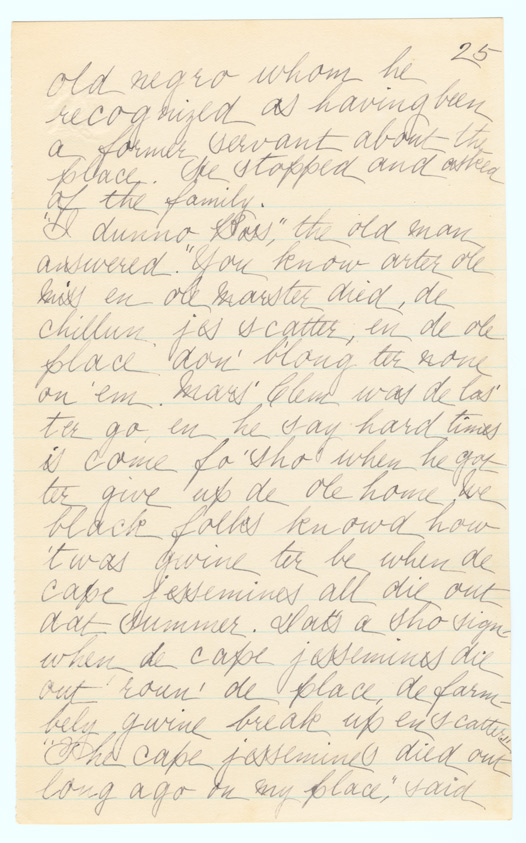 25
old negro whom he
recognized as having been
a former servant about the
place. He stopped and asked
of the family.
"I dunno Boss," the old man
answered. "You know arter ole
miss en ole marster died, de
chillun jes scatter, en de ole
place don' b'long ter none
on 'em. Mars' Clem was de las'
ter go, en he say hard times
is come fo' sho when he got
ter give up de ole home, We
black folks knowd how
'twas gwine ter be when de
cape jessemines all die out
dat summer. Dats a sho sign-
when de cape jessemines die
out 'roun' de place, de farm-
bely gwine break up en scatter."
"The cape jessemines died out
long ago on my place," said